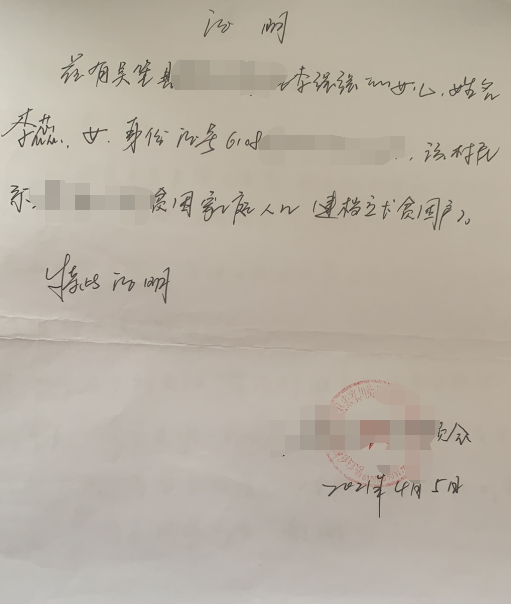 证明
兹有吴堡县李强强的女儿，姓名
李蕊，女，身份证号6108，该村民
系，贫困家庭人口建档立卡贫困户。
特此证明
员会
2021年4月5日